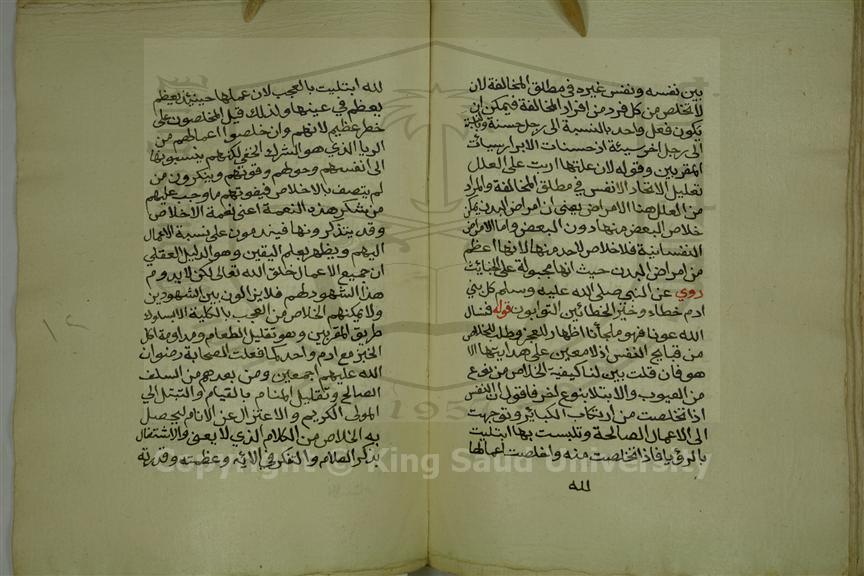 بين نفسه ونفس غيره في مطلق المخالفة لان
لا تخلص من كل فرد من افراد المخالفة فيمكن ان
يكون فعل واحد بالنسبة الى رجل حسنة وبالنسبة
الى رجل اخر سيئة اذ حسنات الابرار سيئات
المقربين وقوله لان علتها اربت على العلل
تعليل لاتحاد الانفس في مطلق المخالفة والمراد
من العلل هنا الامراض يعني ان امراض البدن يمكن
خلاص البعض منها دون البعض واما الامراض
النفسانية فلا خلاص لاحد منها لانها اعظم
من امراض البدن حيث انها مجبولة على الخبائث
روي عن النبي صلى الله عليه وسلم كل بني
ادم خطاء وخير الخطائين التوابون قوله فنسال
الله عونا فهو ملجأنا اظهار للعجز وطلب للخلاص
من قبايح النفس اذ لا معين على هدايتها الا
هو فان قلت بين لنا كيفية الخلاص من نوع
من العيوب والابتلا بنوع اخر فاقول ان النفس
اذا تخلصت من ارتكاب الكبائر وتوجهت
الى الاعمال الصالحة وتلبست بها ابتليت
بالرؤيا فاذا تخلصت منه واخلصت اعمالها
لله
لله ابتليت بالعجب لان عملها حينئذ يعظم
يعظم في عينها ولذلك قيل المخلصون على
خطر عظيم لانهم وان خلصوا اعمالهم من
الريا الذي هو الشرك الخفي لكنهم ينسبونها
الى انفسهم وحولهم وقوتهم وينكرون من
لم يتصف بالاخلاص فيفوتهم ما وجب عليهم
من شكر هذه النعمة اعني نعمة الاخلاص
وقد يتذكرونها فيندمون على نسبة الاعمال
اليهم ويظهر بعلم اليقين وهو الدليل العقلي
ان جميع الاعمال خلق الله تعالى لكن لا يدوم
هذا الشهود لهم فلا يزالون بين الشهودين
ولا يمكنهم الخلاص من العجب بالكلية الا بسلوك
طريق المقربين وهو تقليل الطعام ومداومة اكل
الخبز مع ادم واحد كما فعلت الصحابة رضوان
الله عليهم اجمعين ومن بعدهم من السلف
الصالح وتقليل المنام بالقيام والتبتل الى
المولى الكريم والاعتزال عن الانام ليحصل
به الخلاص من الكلام الذي لا يعني والاشتغال
بذكر السلام والتفكر في الائه وعظمته وقدرته
١٢
1957
Copyright © King Saud University